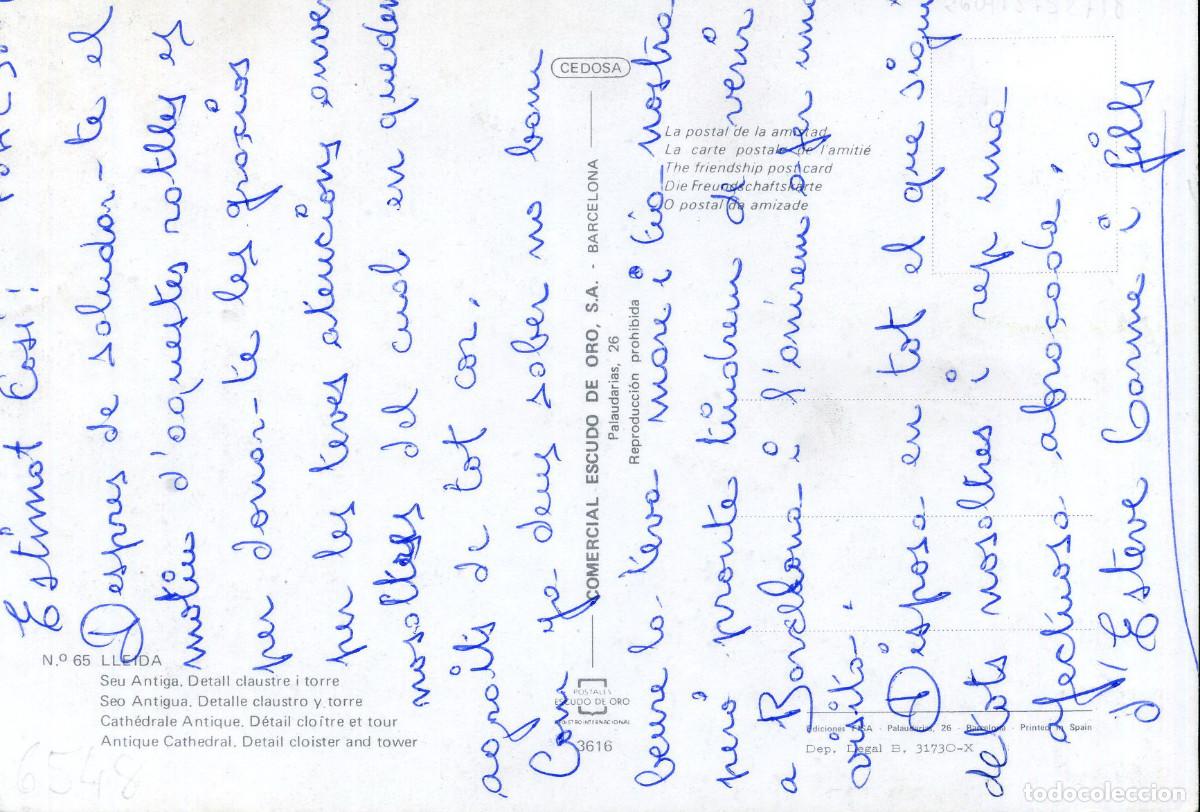 Estimat Cosí!
Despres de saludar-te el
motiu d'aquestes ratlles es
per donar-te les gracies
per les teves atencions envers
nosaltres del cual en quedem
agraïts de tot cor.
Com ja deus saber no vam
veure la teva mare i tia nostra
però pronte tindrem de venir
a Barcelona i l'anirem a fer una
visita.
Disposa en tot el que sigui
de tots nosaltres i rep una
afectuosa abraçada,
d'Esteve Carme i fills
N.º 65 LLEIDA
Seu Antiga. Detall claustre i torre
Seo Antigua. Detalle claustro y torre
Cathédrale Antique. Détail cloître et tour
Antique Cathedral. Detail cloister and tower
CEDOSA
COMERCIAL ESCUDO DE ORO, S.A. - BARCELONA
Palaudarias, 26
Reproducción prohibida
POSTALES
ESCUDO DE ORO
3616
La postal de la amistad
La carte postale de l'amitié
The friendship post card
Die Freundschaftskarte
O postal da amizade
Ediciones FISA - Palaudarias, 26 - Barcelona - Printed in Spain
Dep. Legal B. 31730-X
6548
todocoleccion